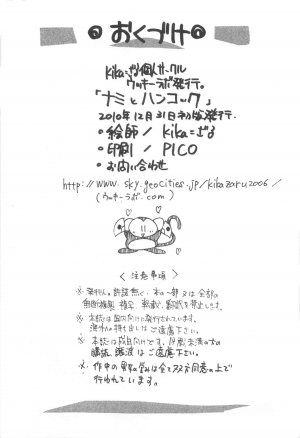 おくづけ
kika=ざる個人サークル
ウッキーラボ発行。
「ナミとハンコック」
2010年12月31日 発行
・絵師/kika=ざる
・印刷/PICO
・お問い合わせ
http://www.sky.geocities.jp/kikazaru2006/
(ウッキーラボ.com)
〈注意事項〉
※発行人の許諾無く、本の一部又は全部の
無断転載、複写、転載を禁止します。
※本誌は国内向けに発行されています。
海外への持ち出しはご遠慮下さい。
※本誌は成人向けです。18歳未満の方の
購読、譲渡はご遠慮下さい。
※作中の は全て双方同意の上で
行われています。